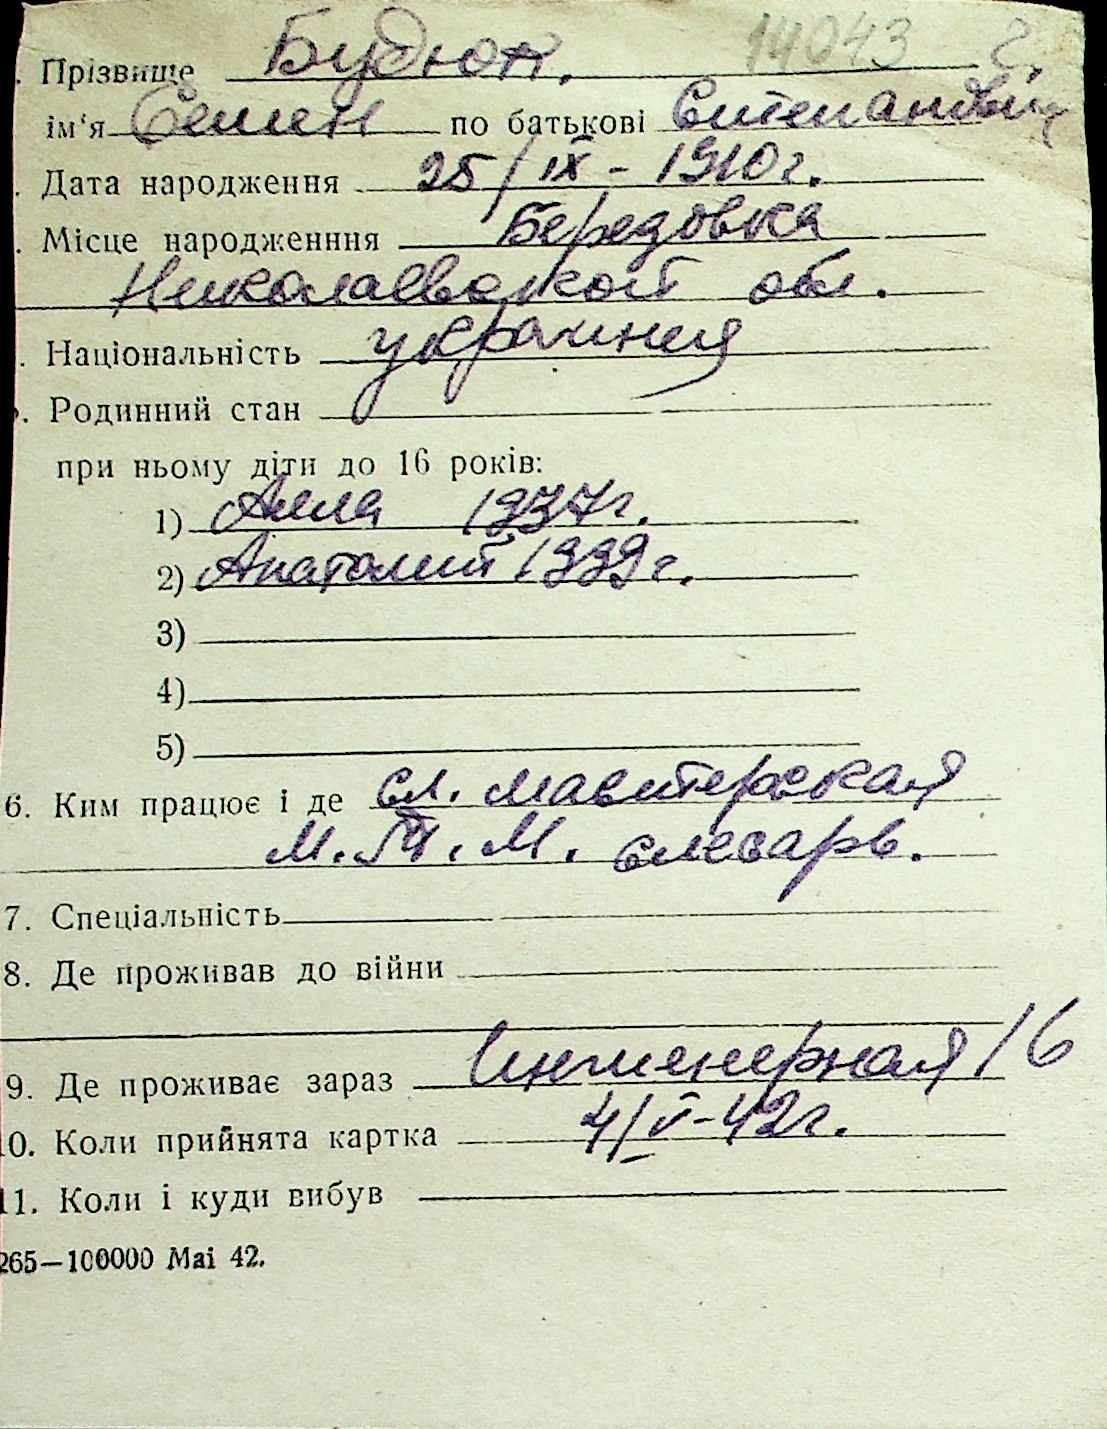 14043
. Прізвище Будюк.
ім‘я Семен по батькові Степанович
. Дата народження 25/IX - 1910г.
. Місце народженння Березовка
Николаевской обл.
. Національність украинец
. Родинний стан
при ньому діти до 16 років:
1) Алла 1937г.
2) Анатолий 1939г.
3)
4)
5)
6. Ким працює і де сл. мастерская
М.Т.М. слесарь.
7. Спеціальність
8. Де проживав до війни
9. Де проживає зараз Инженерная 16
10. Коли прийнята картка 4/V-42г.
11. Коли і куди вибув
265—100000 Mai 42.